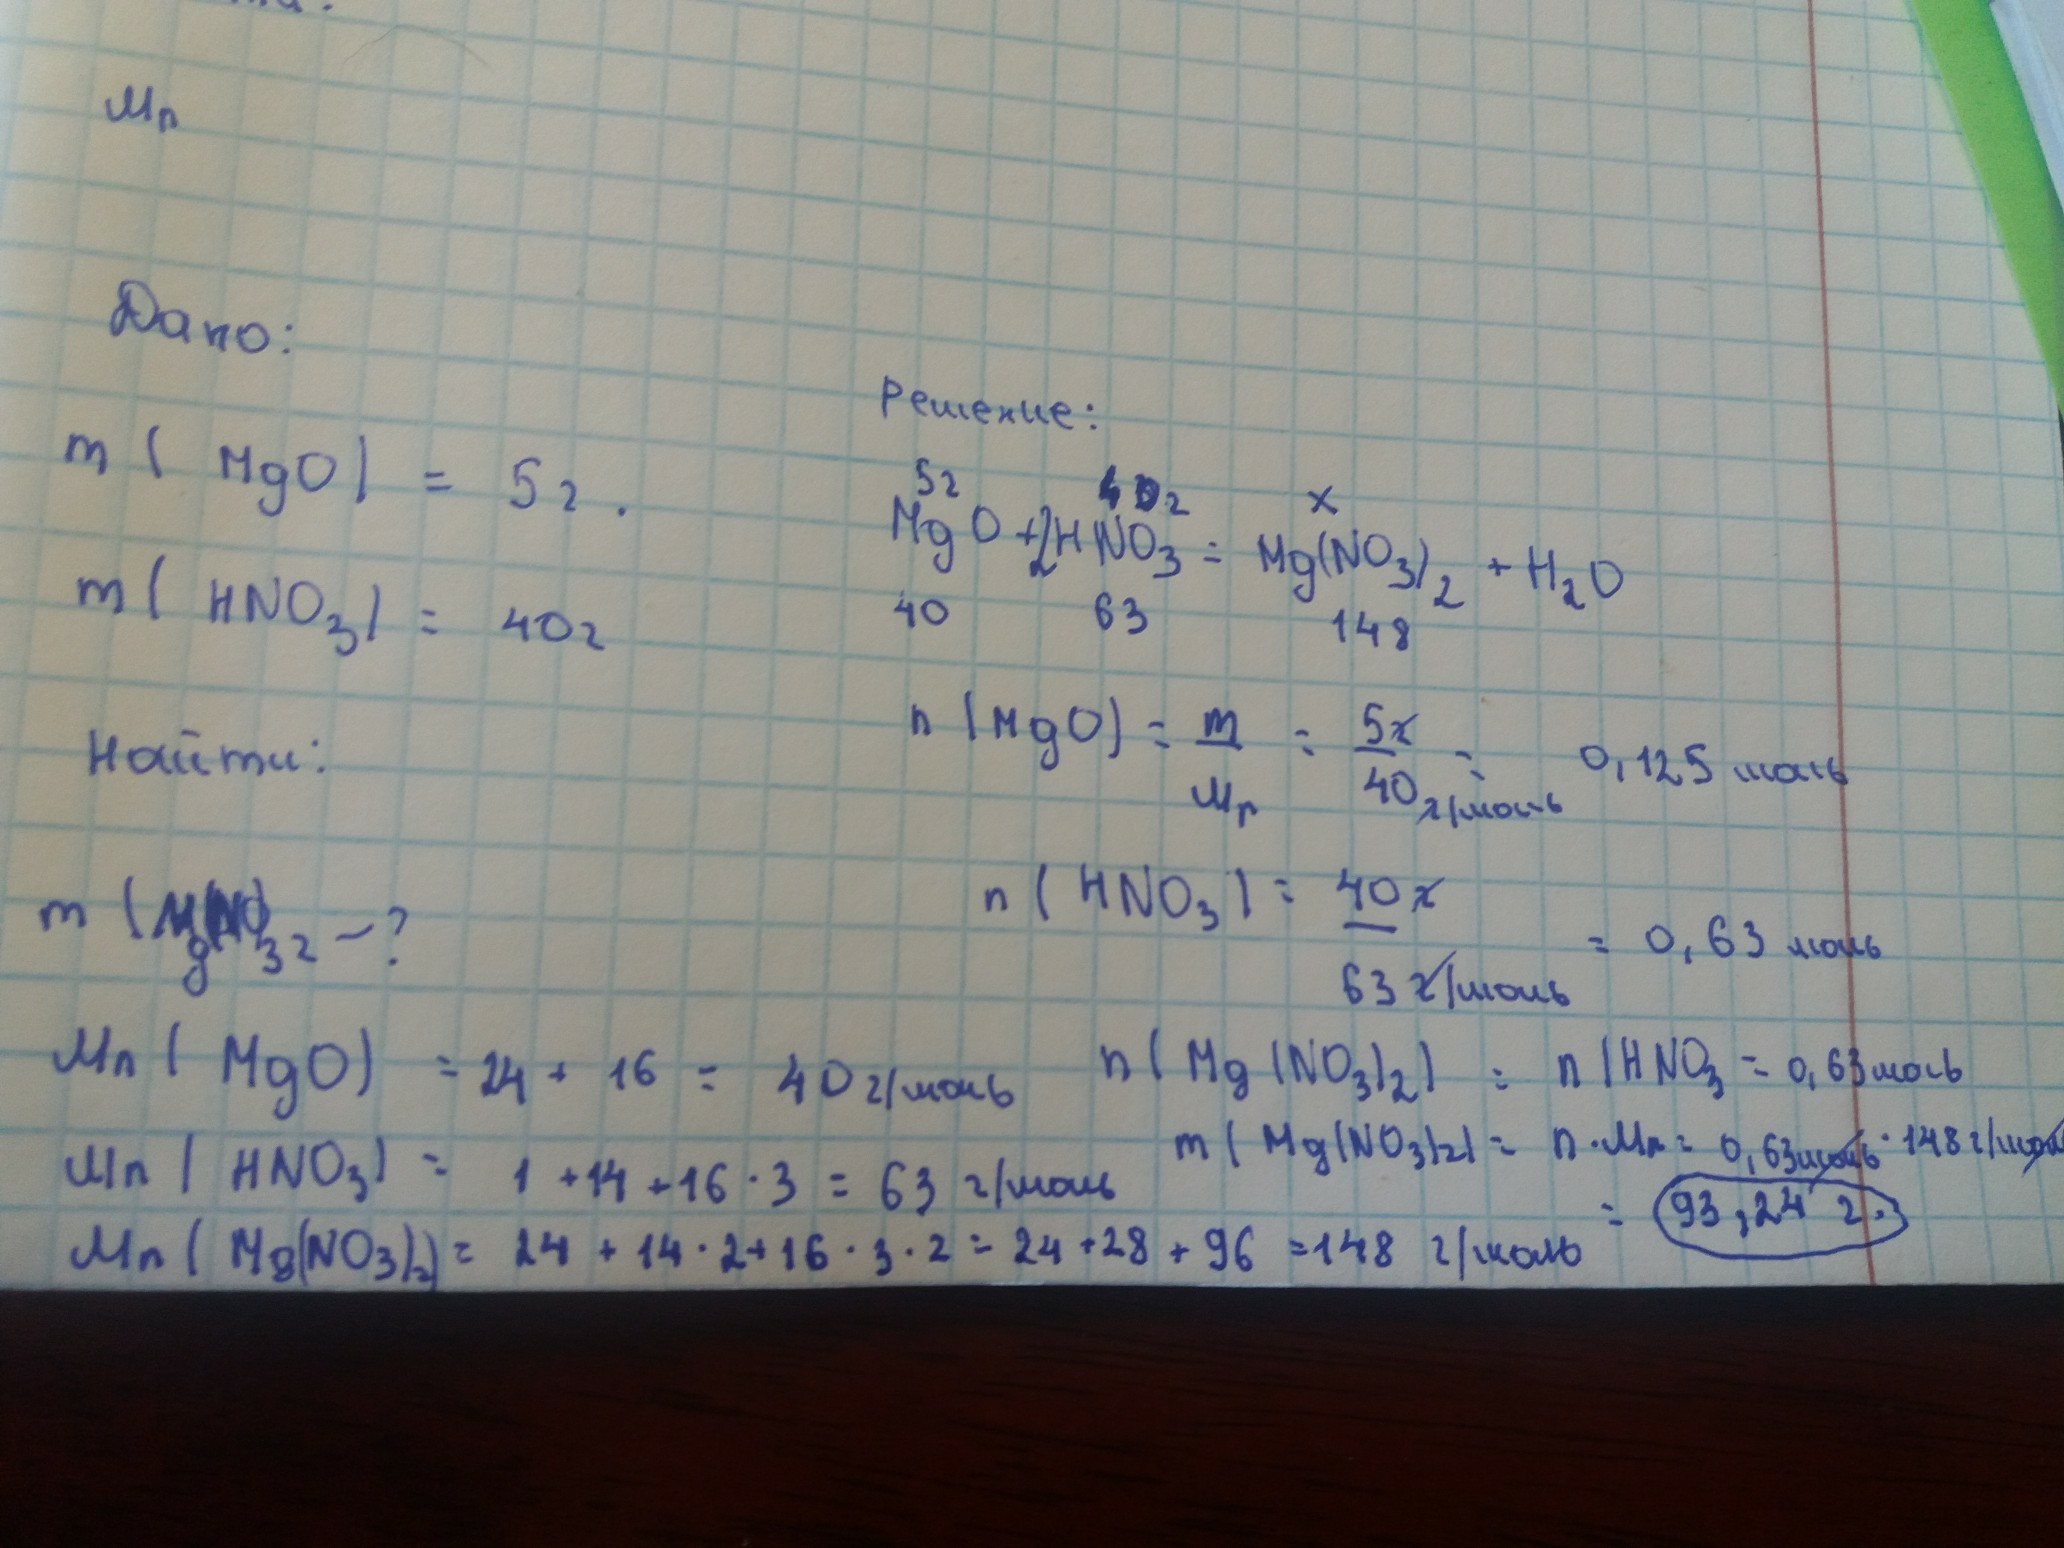 Mr
Дано:
m ( MgO) = 5г.
m ( HNO₃) = 40г
Найти:
m (Mg(NO₃)₂ – ?
Mr ( MgO) = 24 + 16 = 40 г/моль
Mr ( HNO₃) = 1 + 14 + 16 · 3 = 63 г/моль
Mr ( Mg(NO₃)₂) = 24 + 14 · 2 + 16 · 3 · 2 = 24 + 28 + 96 = 148 г/моль
Решение:
5г 40г x
MgO + 2HNO₃ = Mg(NO₃)₂ + H₂O
40 63 148
n (MgO) = m/Mr = 5г/40 г/моль = 0,125 моль
n ( HNO₃) = 40г/63 г/моль = 0,63 моль
n ( Mg (NO₃)₂) = n (HNO₃ = 0,63 моль
m ( Mg(NO₃)₂) = n · Mr = 0,63 моль · 148 г/моль
= 93,24 г.